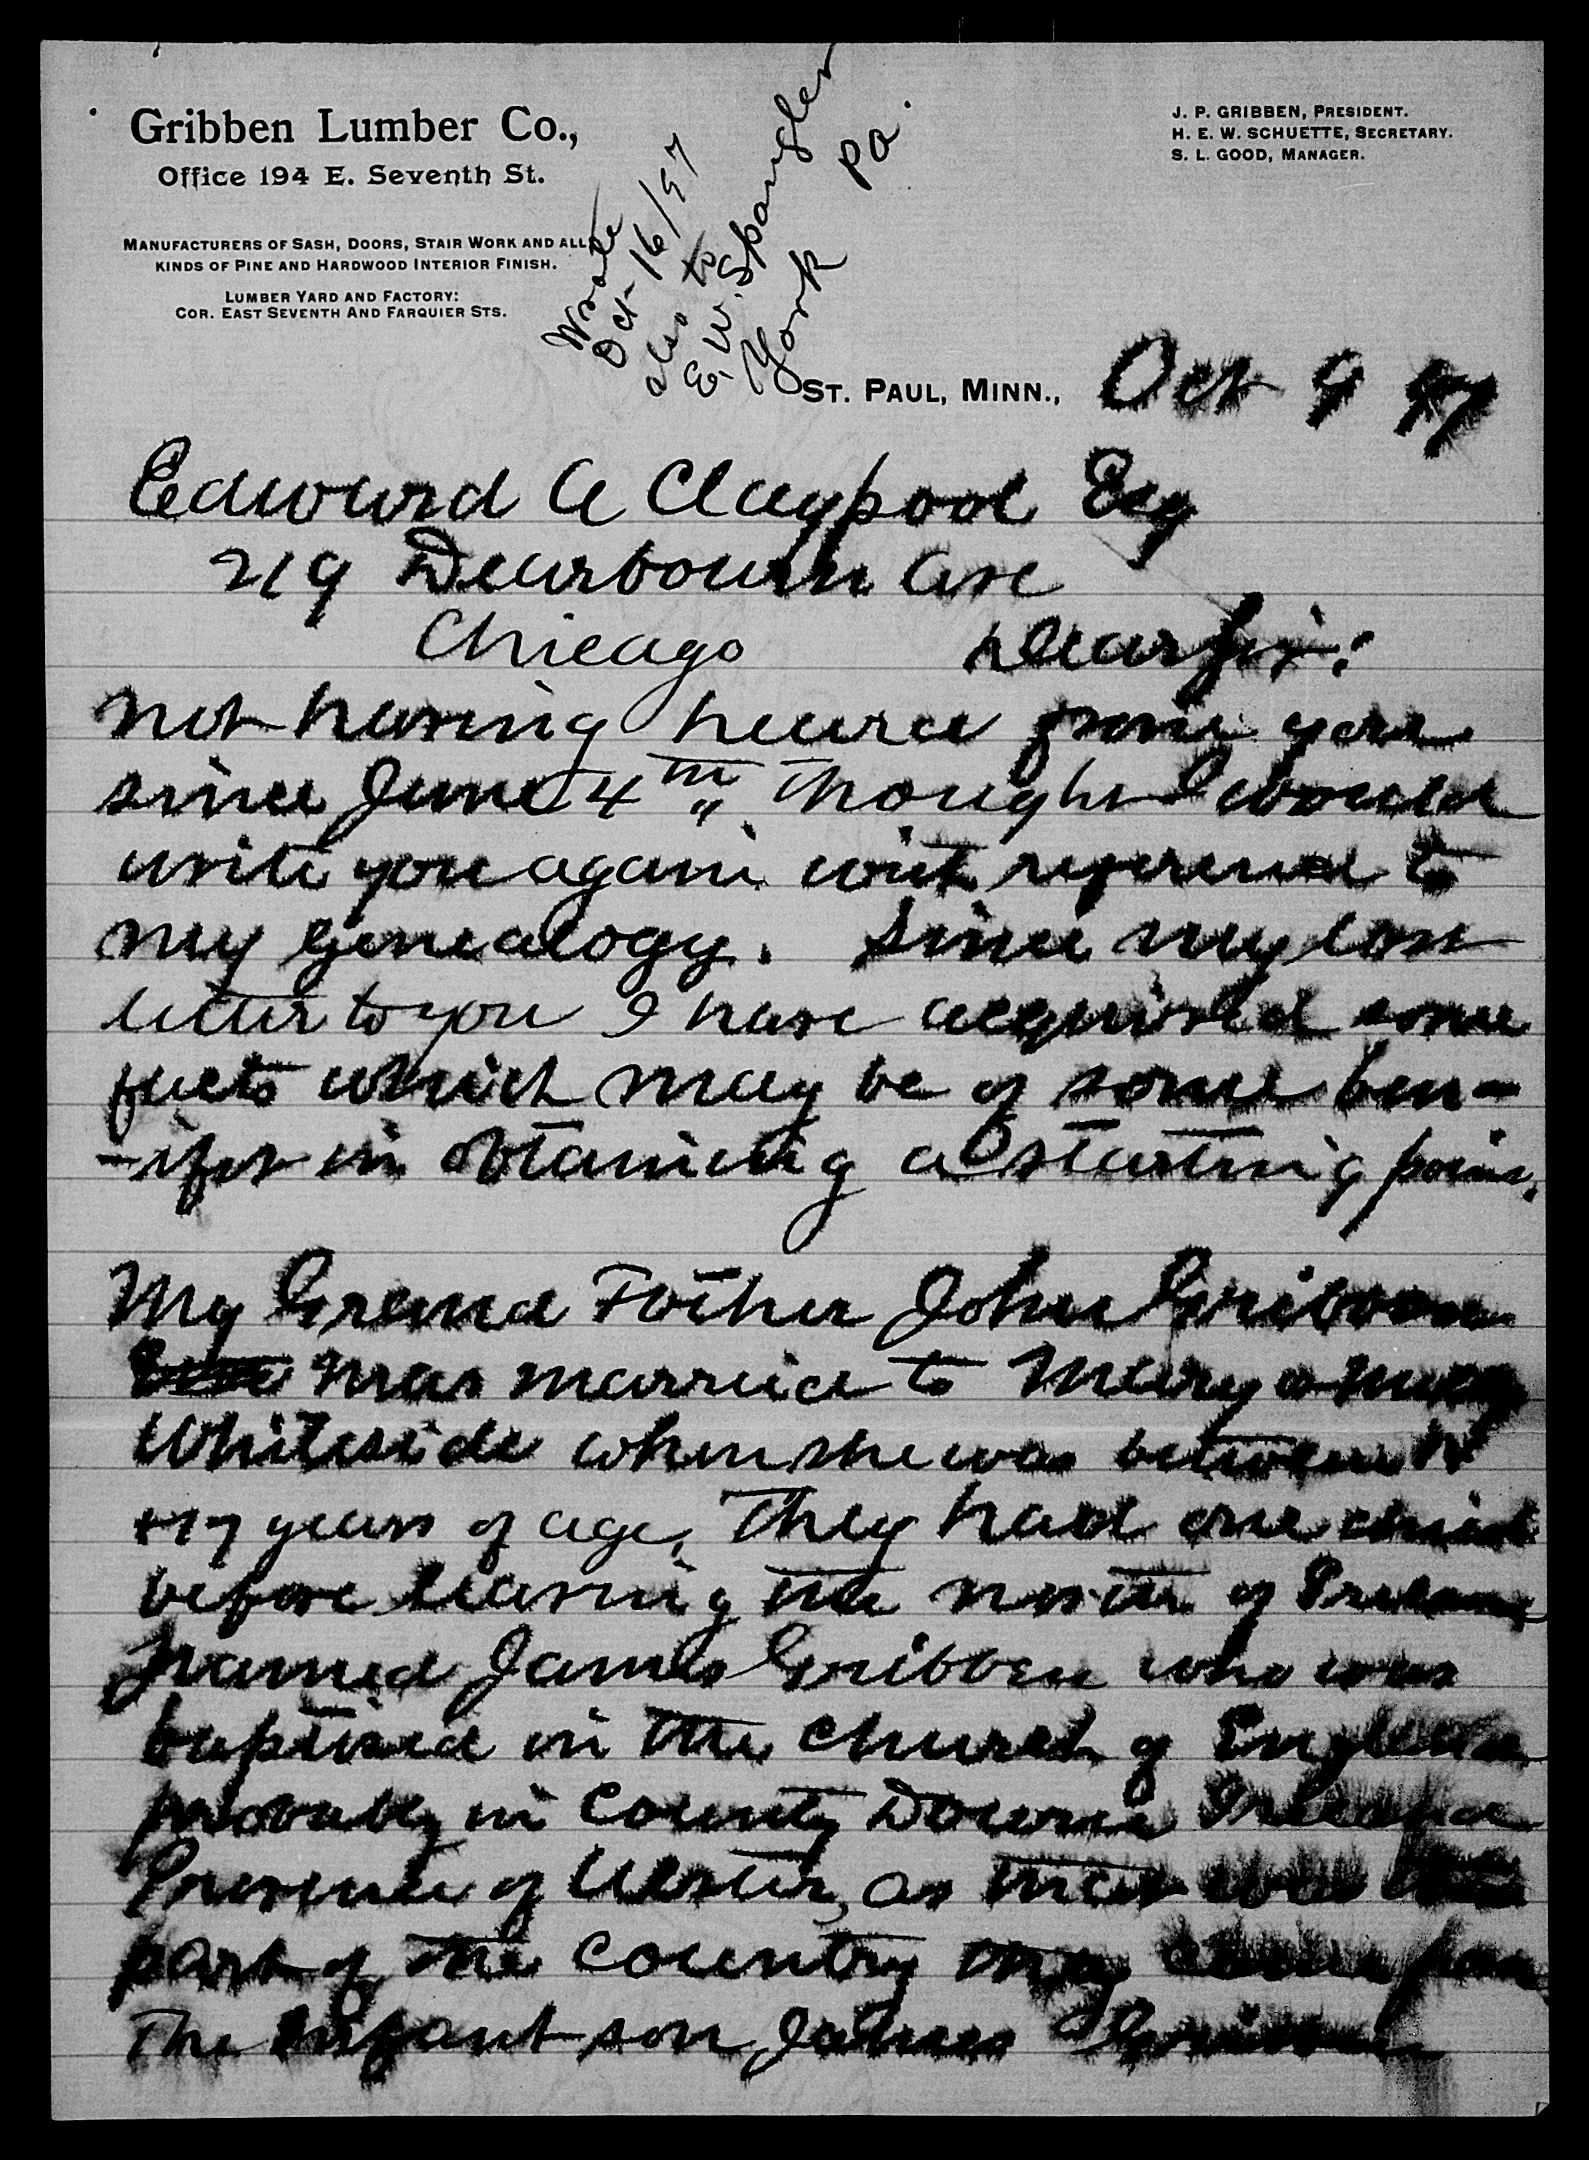 Gribben Lumber Co.,
Office 194 E. Seventh St.
Manufacturers of Sash, Doors, Stair Work and all
kinds of Pine and Hardwood Interior Finish.
Lumber Yard and Factory:
Cor. East Seventh and Farquier Sts.
J. P. Gribben, President.
H. E. W. Schuette, Secretary.
S. L. Good, Manager.
Wrote
Oct-16/97
also to
E. W. Spangler
York Pa.
St. Paul, Minn., Oct 9 97
Edward A Claypool Esq
219 Dearbourn Ave
Chicago Dear Sir:
Not having heard from you
since June 4th " thought I would
write you again with reference to
my genealogy. Since my last
letter to you I have acquired some
facts which may be of some ben-
-ifit in obtaining a starting point.
My Grand Father John Gribben
was married to Mary
Whiteside when she was between 16
+17 years of age. They had one child
before leaving the north of Ireland
named James Gribben who was
baptised in the Church of England
probably in County Down Ireland
Province of Ulster, as that was the
part of the country they came from
The infant son James Gribben